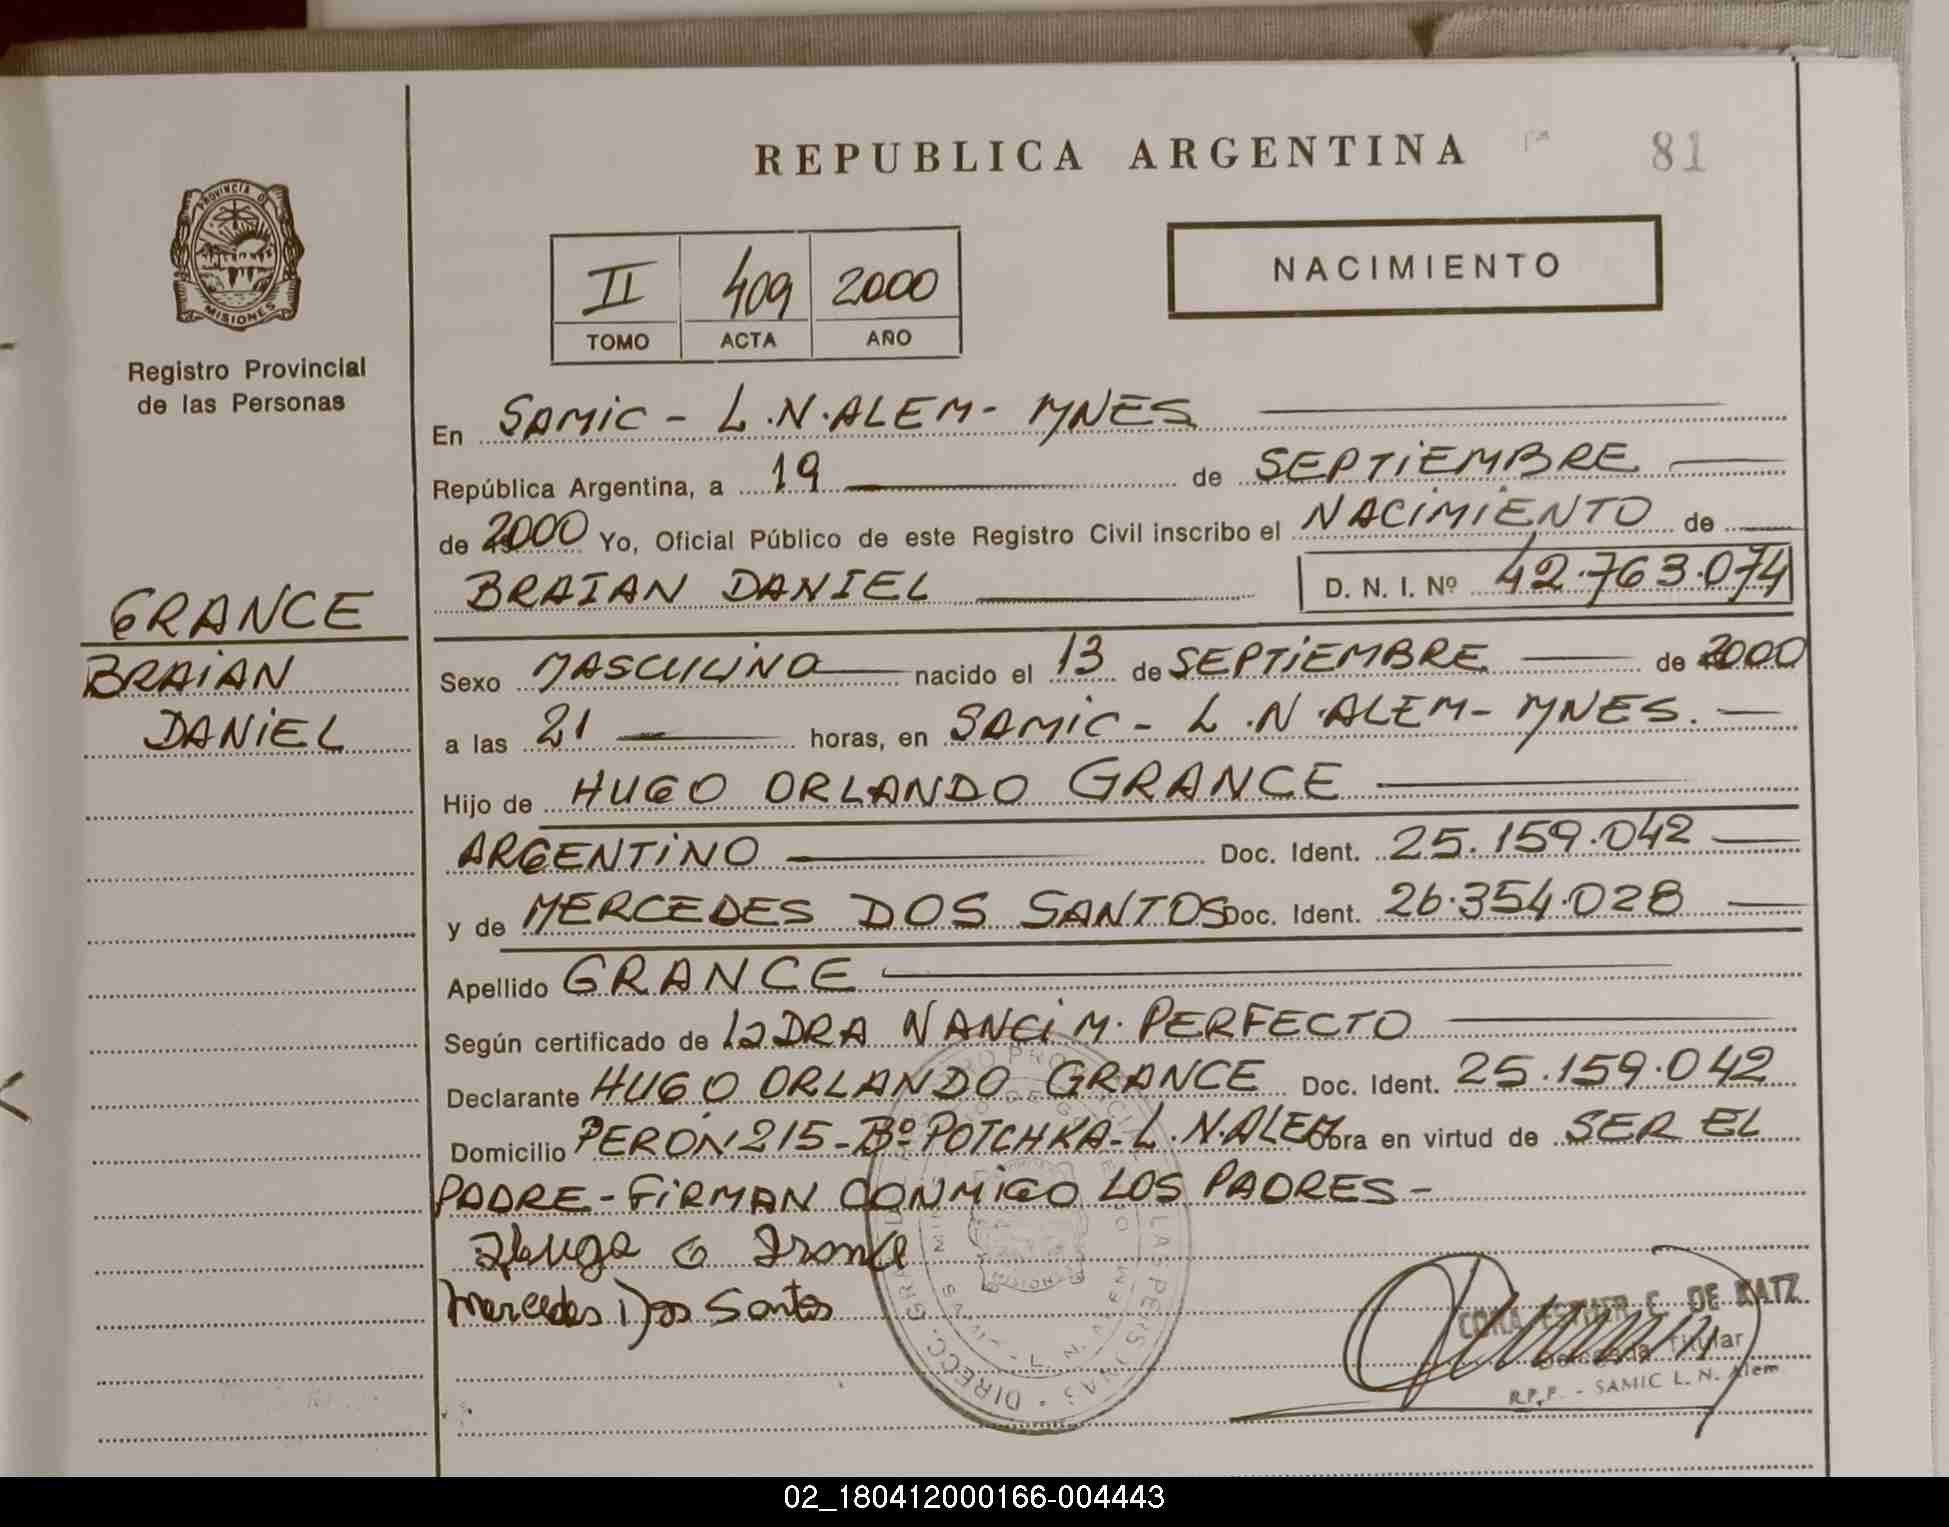 REPUBLICA ARGENTINA
81
PROVINCIA DE
MISIONES
Registro Provincial
de las Personas
II 409 2000
TOMO ACTA AÑO
NACIMIENTO
En SAMIC - L.N.ALEM - MNES
República Argentina, a 19 de SEPTIEMBRE
de 2000 Yo, Oficial Público de este Registro Civil inscribo el NACIMIENTO de
BRAIAN DANIEL D. N. I. Nº 42.763.074
GRANCE
BRAIAN
DANIEL
Sexo MASCULINO nacido el 13 de SEPTIEMBRE de 2000
a las 21 horas, en SAMIC - L.N.ALEM - MNES.
Hijo de HUGO ORLANDO GRANCE
ARGENTINO Doc. Ident. 25.159.042
y de MERCEDES DOS SANTOS Doc. Ident. 26.354.028
Apellido GRANCE
Según certificado de la DRA NANCI M. PERFECTO
Declarante HUGO ORLANDO GRANCE Doc. Ident. 25.159.042
Domicilio PERON 215 - Bº POTCHKA - L.N.ALEM Obra en virtud de SER EL
PADRE - FIRMAN CONMIGO LOS PADRES -
Hugo O Grance
Mercedes Dos Santos
ESTHER C. DE KATZ
Delegada Titular
R.P.P. - SAMIC L. N. Alem
02_180412000166-004443